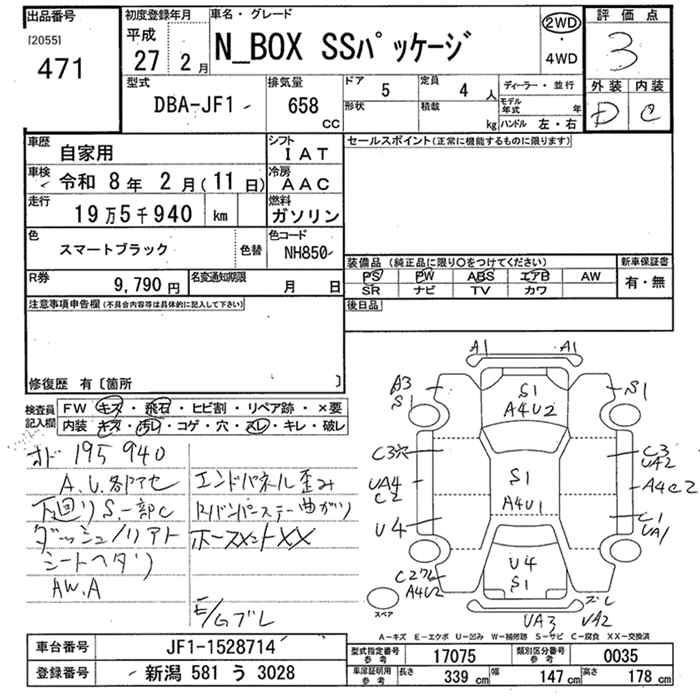 出品番号
[2055]
471
初度登録年月
平成
27 2月
車名・グレード
N_BOX SSパッケージ
2WD
・
4WD
評価点
3
外装 内装
D C
型式
DBA-JF1
排気量
658
CC
ドア 5
定員 4人
形状
積載 kg
ディーラー・並行
モデル年式 年
ハンドル 左・右
車歴
自家用
シフト
IAT
車検
令和 8年 2月(11日)
冷房
AAC
走行
19万5千940 km
燃料
ガソリン
色
スマートブラック
色替
色コード
NH850
R券
9,790円
名変通知期限
月 日
セールスポイント(正常に機能するものに限ります)
装備品(純正品に限り○をつけてください)
PS PW ABS エアB AW
SR ナビ TV カワ
新車保証書
有・無
後日品
注意事項申告欄(不具合内容等は具体的に記入して下さい)
修復歴 有〔箇所 〕
検査員
記入欄
FW キズ・飛石・ヒビ割・リペア跡・×要
内装 キズ・汚レ・コゲ・穴・スレ・キレ・破レ
195940
下廻りS.一部C
シートヘタリ
AW.A
エンドパネル歪み
ホースメントXX
A1 A1
A3
S1
S1
S1
A4U2
C3穴
C3
UA2
UA4
C2
S1
A4U1
A4C2
U4
C1
UA1
U4
S1
A4U2
ズレ
UA3 UA2
スペア
A-キズ E-エクボ U-凹み W-補修跡 S-サビ C-腐食 XX-交換済
車台番号
JF1-1528714
登録番号
新潟 581 う 3028
型式指定番号
参考
17075
類別区分番号
参考
0035
車庫証明用
参考
長さ 339 cm 幅 147 cm 高さ 178 cm